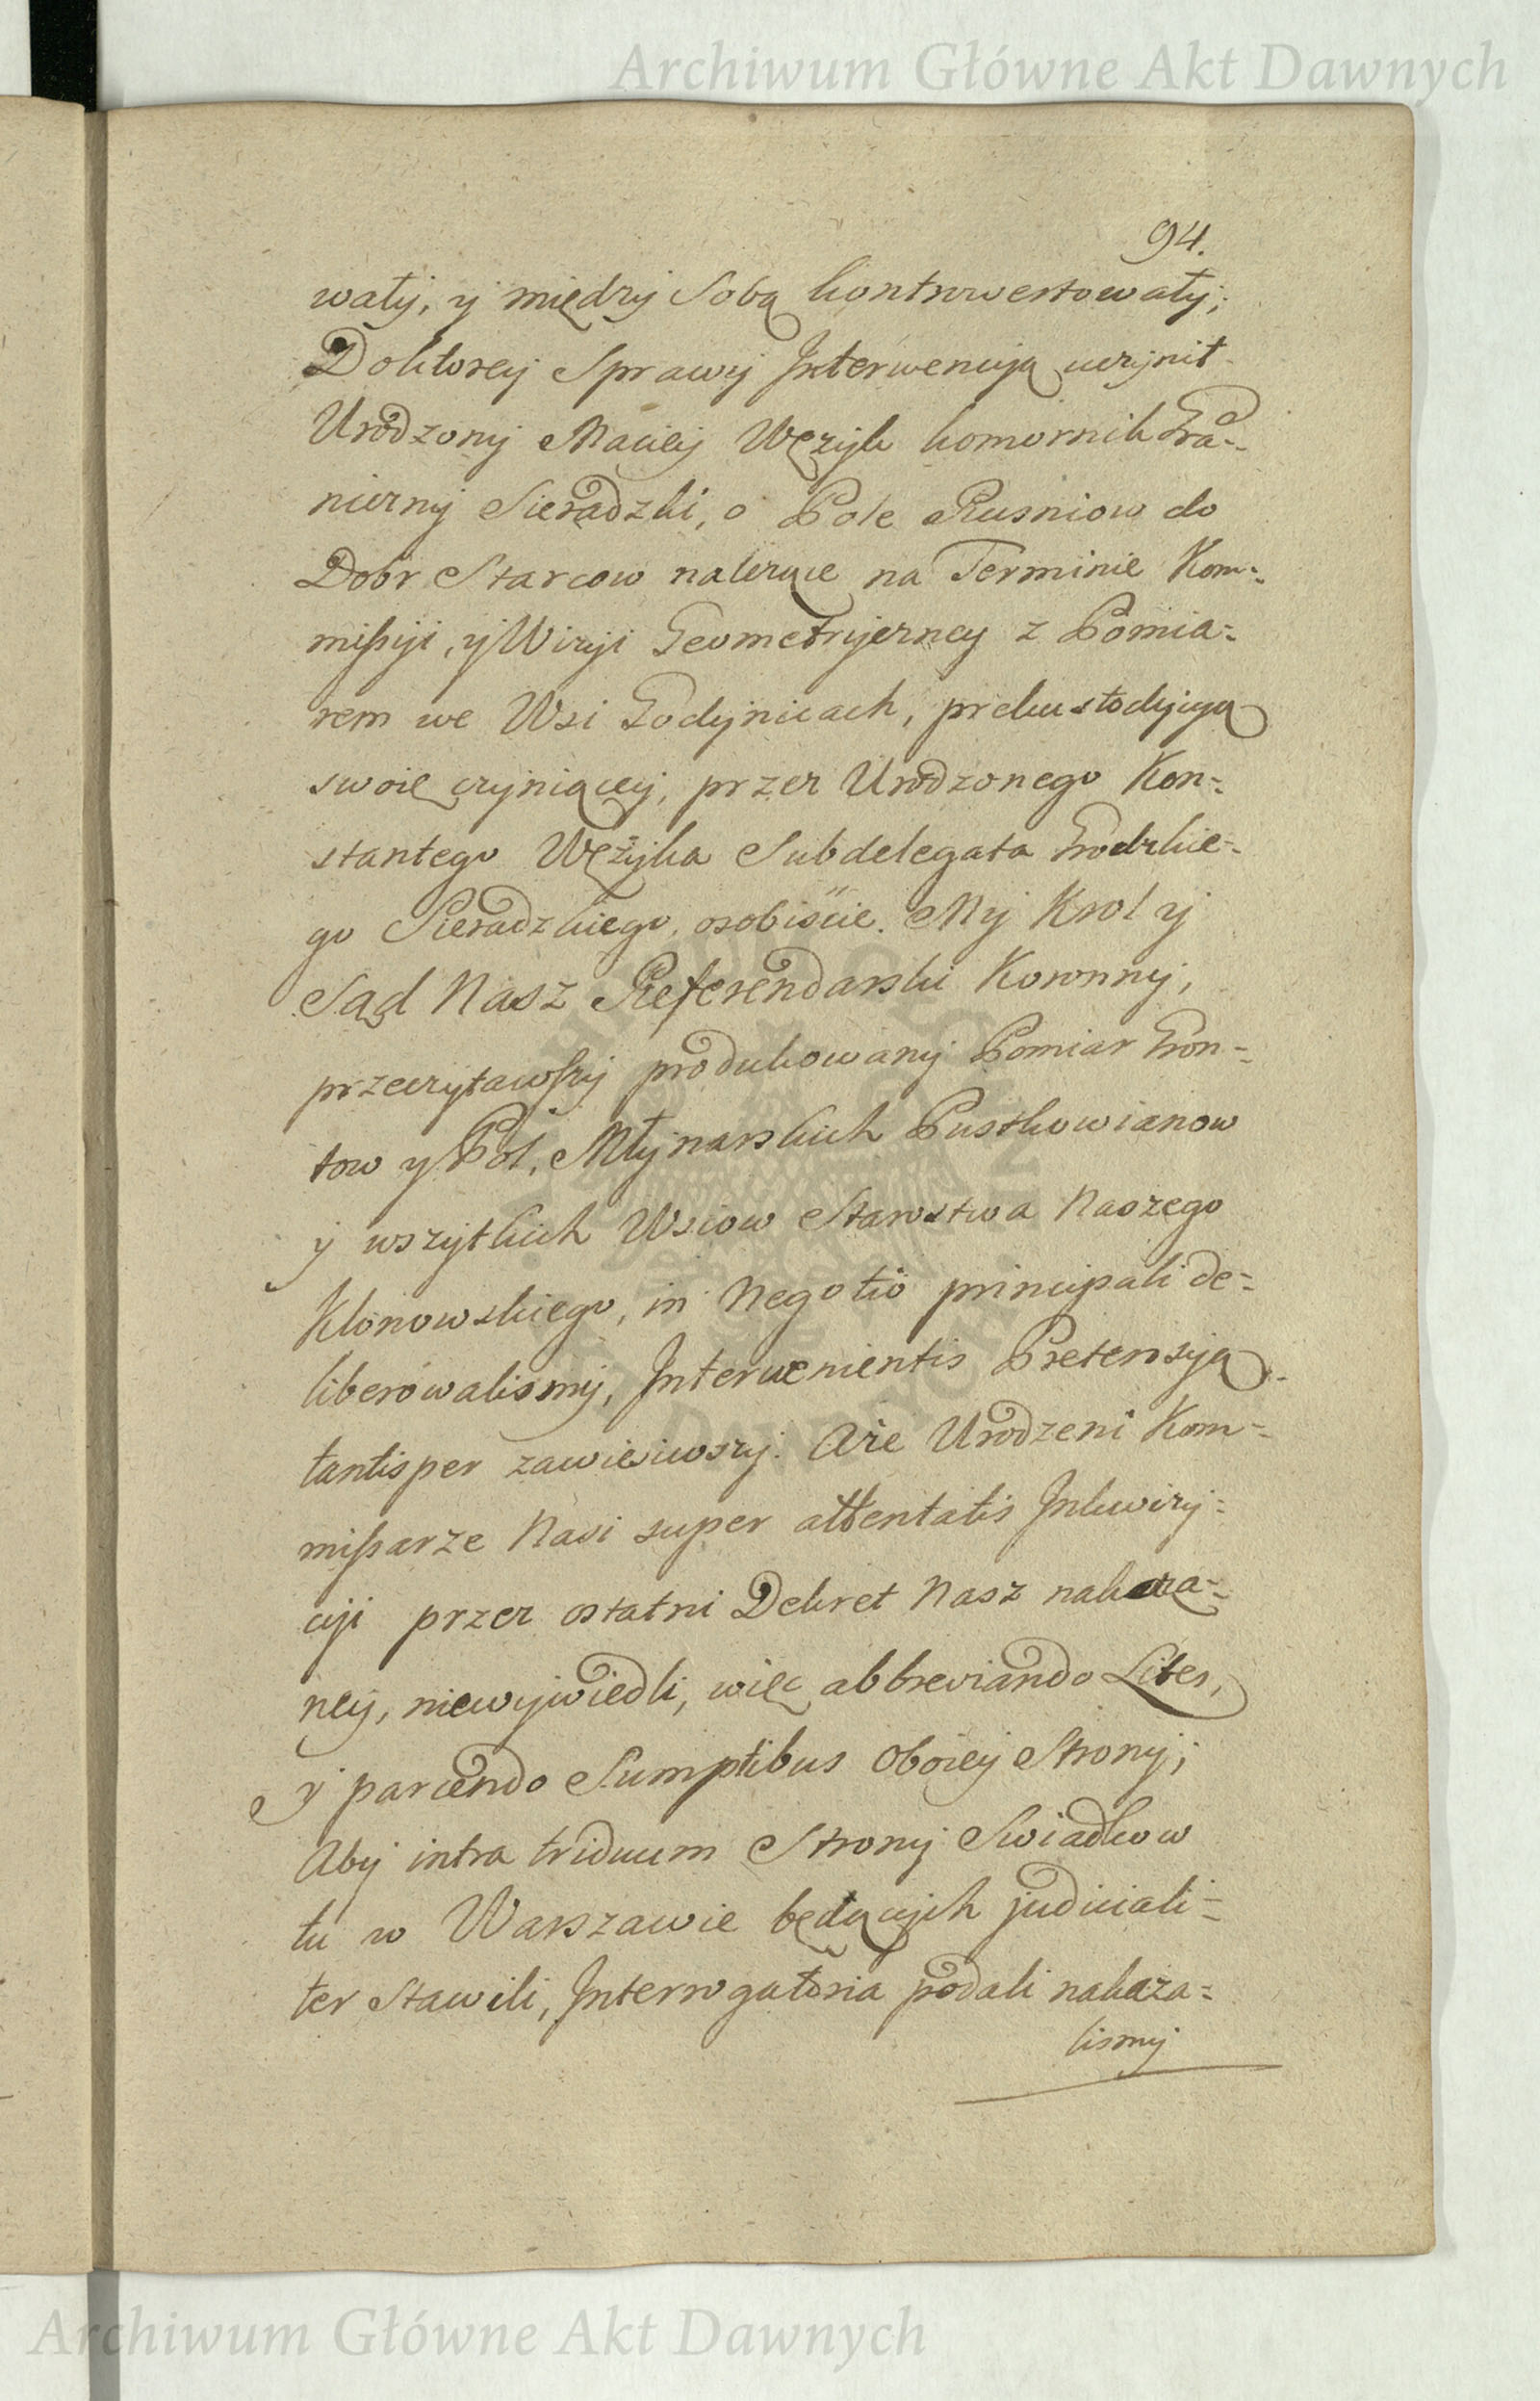 Archiwum Główne Akt Dawnych
94.
wały, y między Sobą kontrwertowały;
Doktorey Sprawy Interwencyą uczynił
Urodzony Maciey Węzyk komornik Gra-
niczny Sieradzki, o Pole Rusniow do
Dobr Starcow należące na Terminie Kom-
missyi, y Wizyi Geometryczney z Pomia-
rem we Wsi Godynicach, prekustodycyą
swoię czyniącey, przez Urodzonego Kon-
stantego Wężyka Subdelegata Grodzkie-
go Sieradzkiego, osobiście. My Krol y
Sąd Nasz Referendarski Koronny,
przeczytawszy produkowany Pomiar Gron-
tow y Pol, Młynarskich Pustkowianow
y wszytkich Wsiow Starostwa Naszego
Klonowskiego, in Negotio principali de-
liberowalismy, Intervenientis Pretensyą
tantisper zawiesiwszy. Aże Urodzeni Kom-
missarze Nasi super attentatis Inkwizy-
cyi przez ostatni Dekret Nasz nakaza-
ney, niewywiedli, więc abbreviando Lites,
y parcendo Sumptibus oboiey Strony;
Aby intra triduum Strony Swiadkow
tu w Warszawie będących judiciali-
ter Stawili, Interrogatoria podali nakaza-
lismy
Archiwum Główne Akt Dawnych